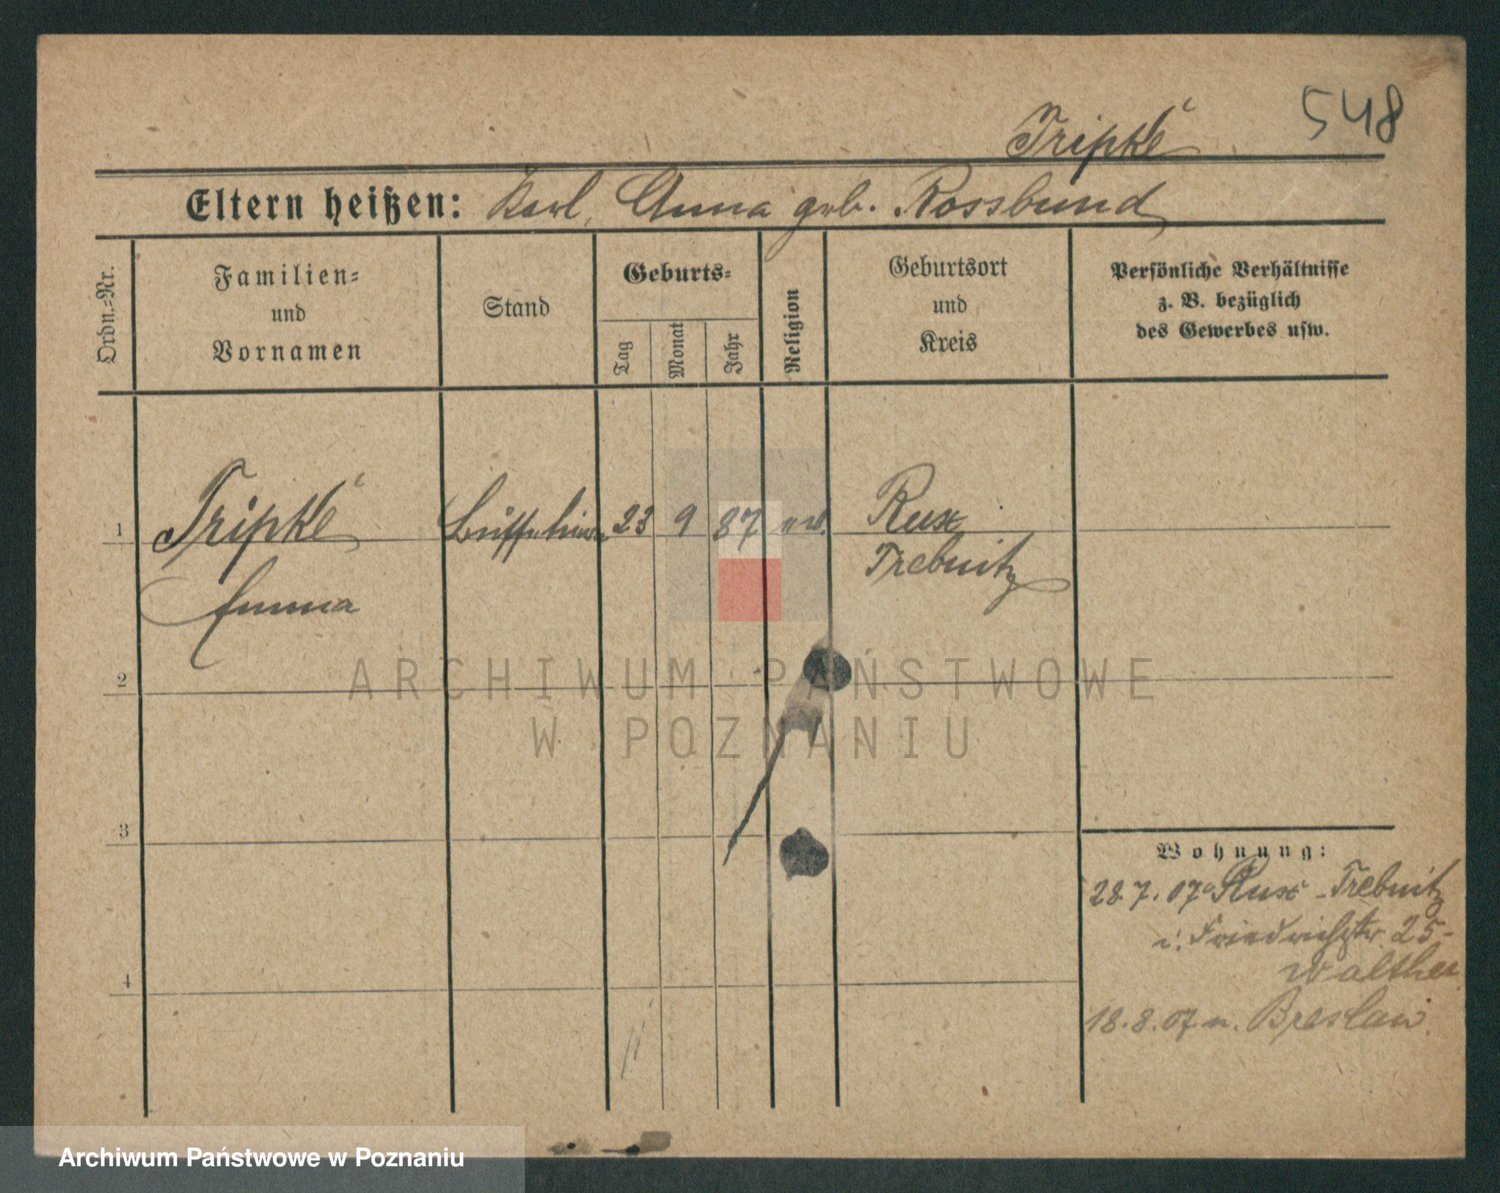 548
Tripke
Eltern heißen: Karl, Anna geb. Rossbund
Ordn.-Nr.
Familien-
und
Vornamen
Stand
Geburts-
Tag
Monat
Jahr
Religion
Geburtsort
und
Kreis
Persönliche Verhältnisse
z. B. bezüglich
des Gewerbes usw.
1
Tripke
23 9 87
Rux
Trebnitz
Emma
2
ARCHIWUM PAŃSTWOWE
W POZNANIU
3
Wohnung:
28.7.07 Rux - Trebnitz
Friedrichstr. 25
Walther
4
18.8.07 n. Breslau.
Archiwum Państwowe w Poznaniu